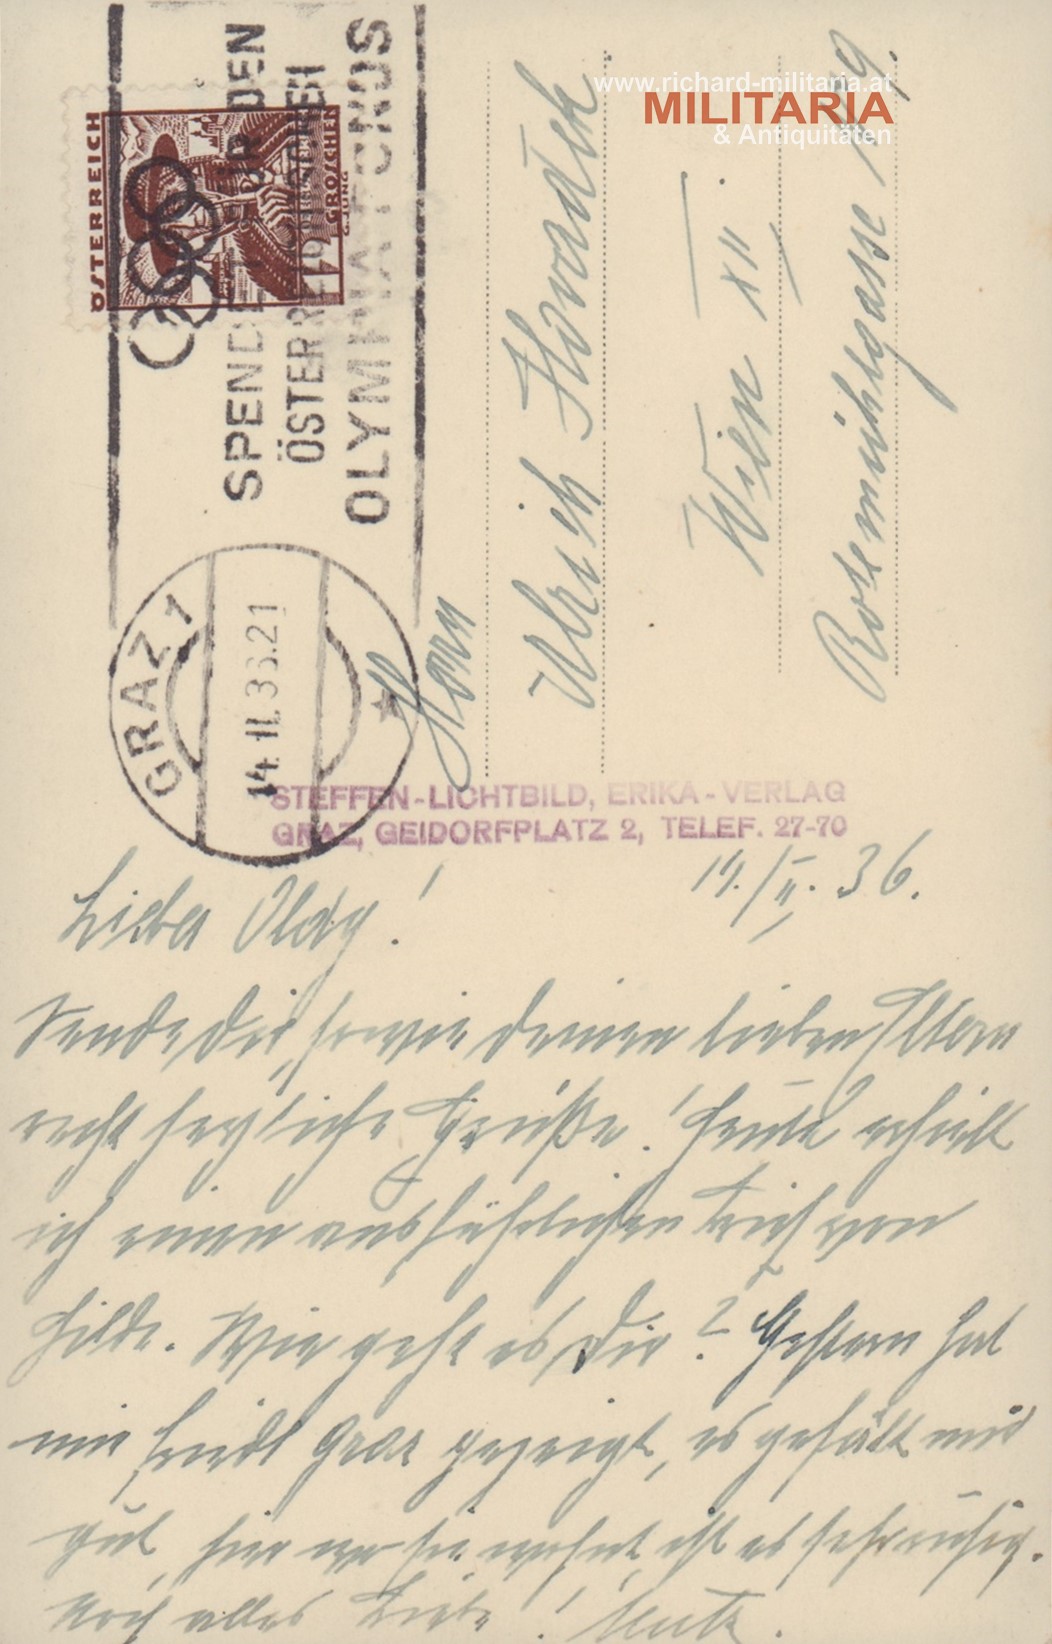 www.richard-militaria.at
MILITARIA
& Antiquitäten
ÖSTERREICH
GROSCHEN
SPENDET FÜR DEN
ÖSTERREICHISCHEN
OLYMPIAFONDS
GRAZ 1
14.II.36.21
Herrn
Ulrich Horvatek
Wien XII.
Rotenmühlgasse
STEFFEN-LICHTBILD, ERIKA-VERLAG
GRAZ, GEIDORFPLATZ 2, TELEF. 27-70
14./II. 36.
Lieber
Sende Dir, sowie Deinen lieben Eltern
recht herzliche Grüße. Heute erhielt
ich einen ausführlichen Brief von
Hilde. Wie geht es Dir? Gestern hat
mir Friedl Graz gezeigt, es gefällt mir
gut, hier wo sie wohnt, ist es sehr ruhig.
Noch alles Liebe!